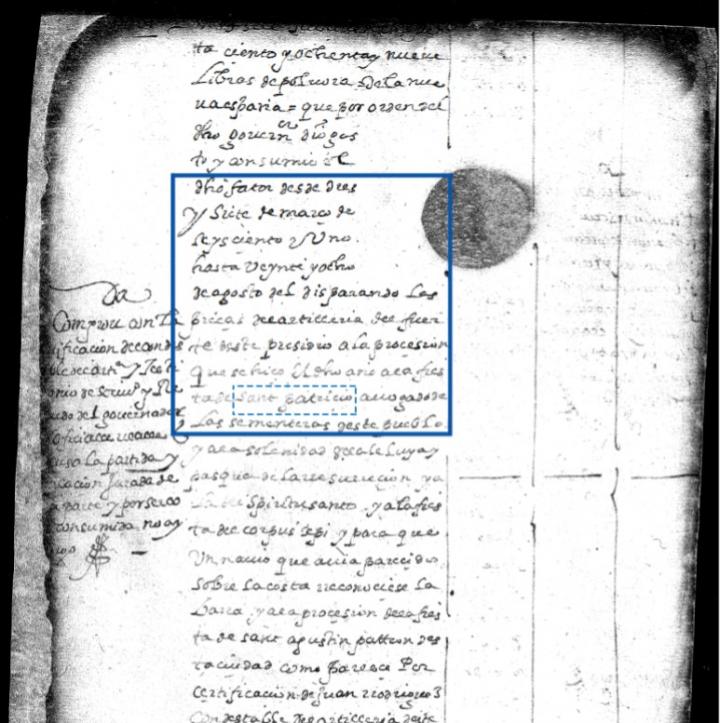 ta ciento y ochenta y nueve
Libras de polvora de la nue
va españa = que por orden del
dho govern
to y consumio el
dho fator desde dies
y siete de março de
seyscientos y Uno
hasta Veynte y ocho
de agosto del disparando Las
pieças de artilleria del fuer
te deste presidio a la procesion
que se hiço el dho año a la fies
ta de sant patricio avogado de
Las sementeras deste pueblo
y a la solenidad de aleluya y
pasqua de la resurecion ya
Spiritusanto y a la fies
ta de corpus xpi y para que
Un navio que avia parecido
sobre la costa reconociese La
barra y a la procesion de la fies
ta de sant agustin patron des
ta ciudad como parece Por
certificacion de Juan rrodrigues
condestable de artilleria deste
Da
Comprov con La
tificacion del condes
y Scrit
nio de Scriv y
del governador
oficiales
la partida y
cacion jurada de
parte y por seco
consumida no ay